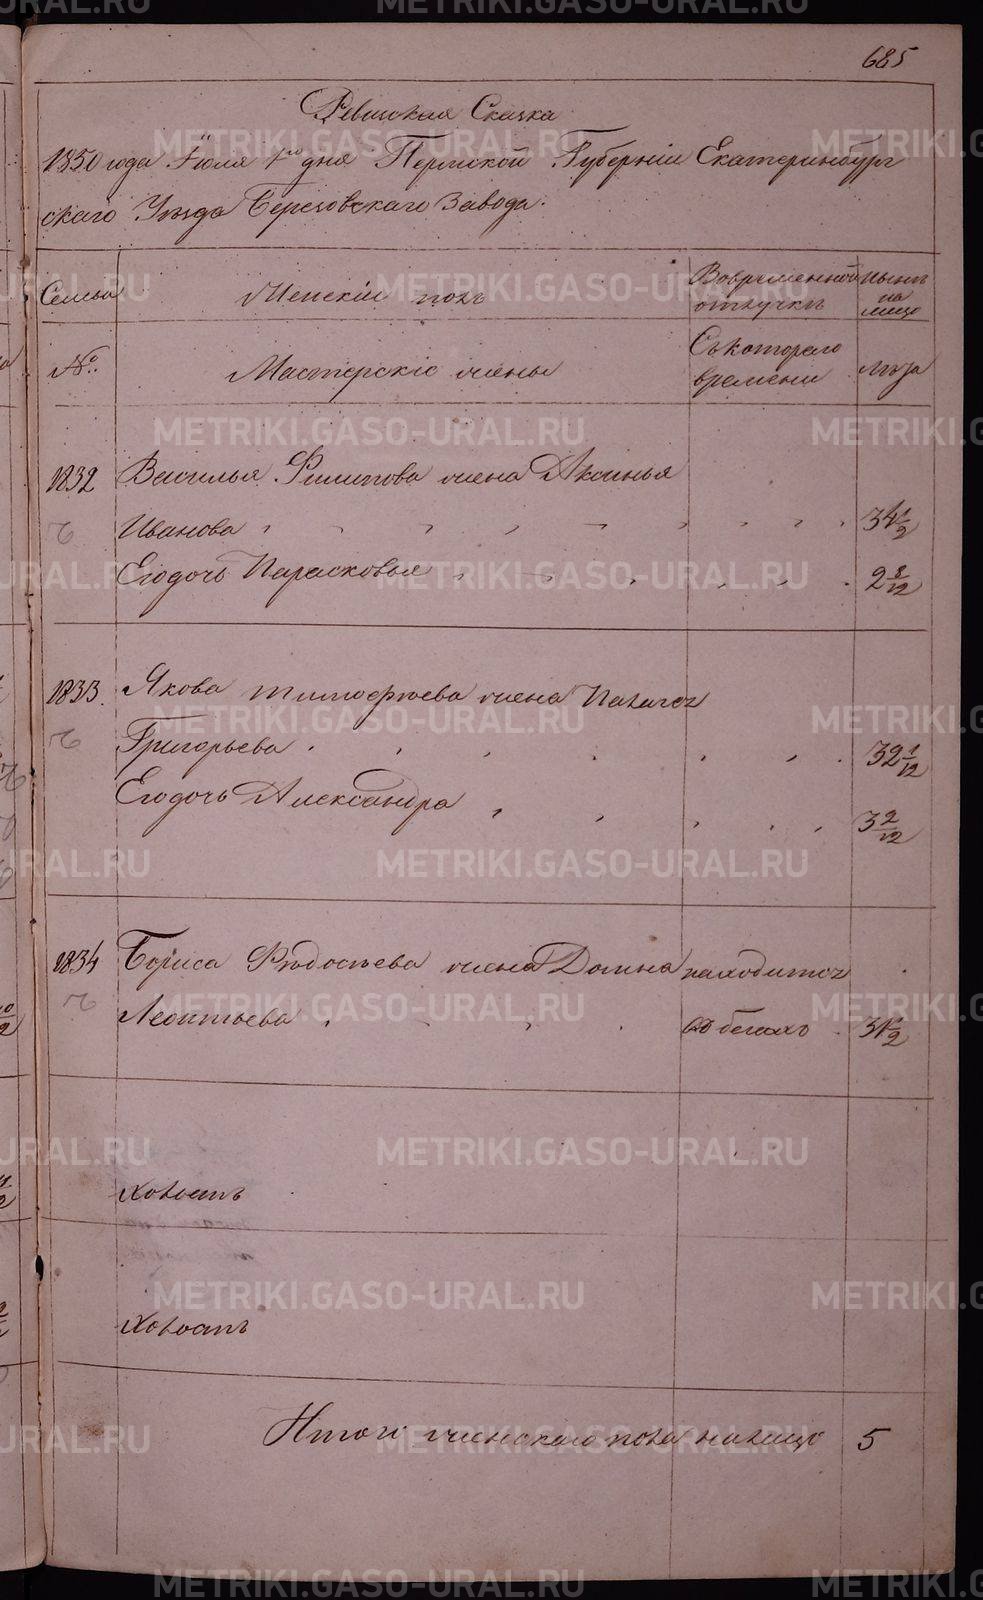 685
Ревизская Сказка
1850 года Іюля 1го дня Пермской Губерніи Екатеринбург
скаго Уѣзда Березовскаго Завода.
Семьи
Женскій полъ
Во временной отлучкѣ
Нынѣ на лицо
№.
Мастерскіе жены
Съ котораго времени
лѣта
1832 Василья Филипова жена Аксинья
Иванова 34 1/2
Его дочь Парасковья 2 8/12
1833. Якова Тимофѣева жена Палагея
Григорьева 32 1/12
Его дочь Александра 3 2/12
1834 Бориса Ѳедосѣева жена Домна находится
Леонтьева въ бегахъ 31 1/2
Холостъ
Холостъ
Итого женскаго пола налицо 5
METRIKI.GASO-URAL.RU